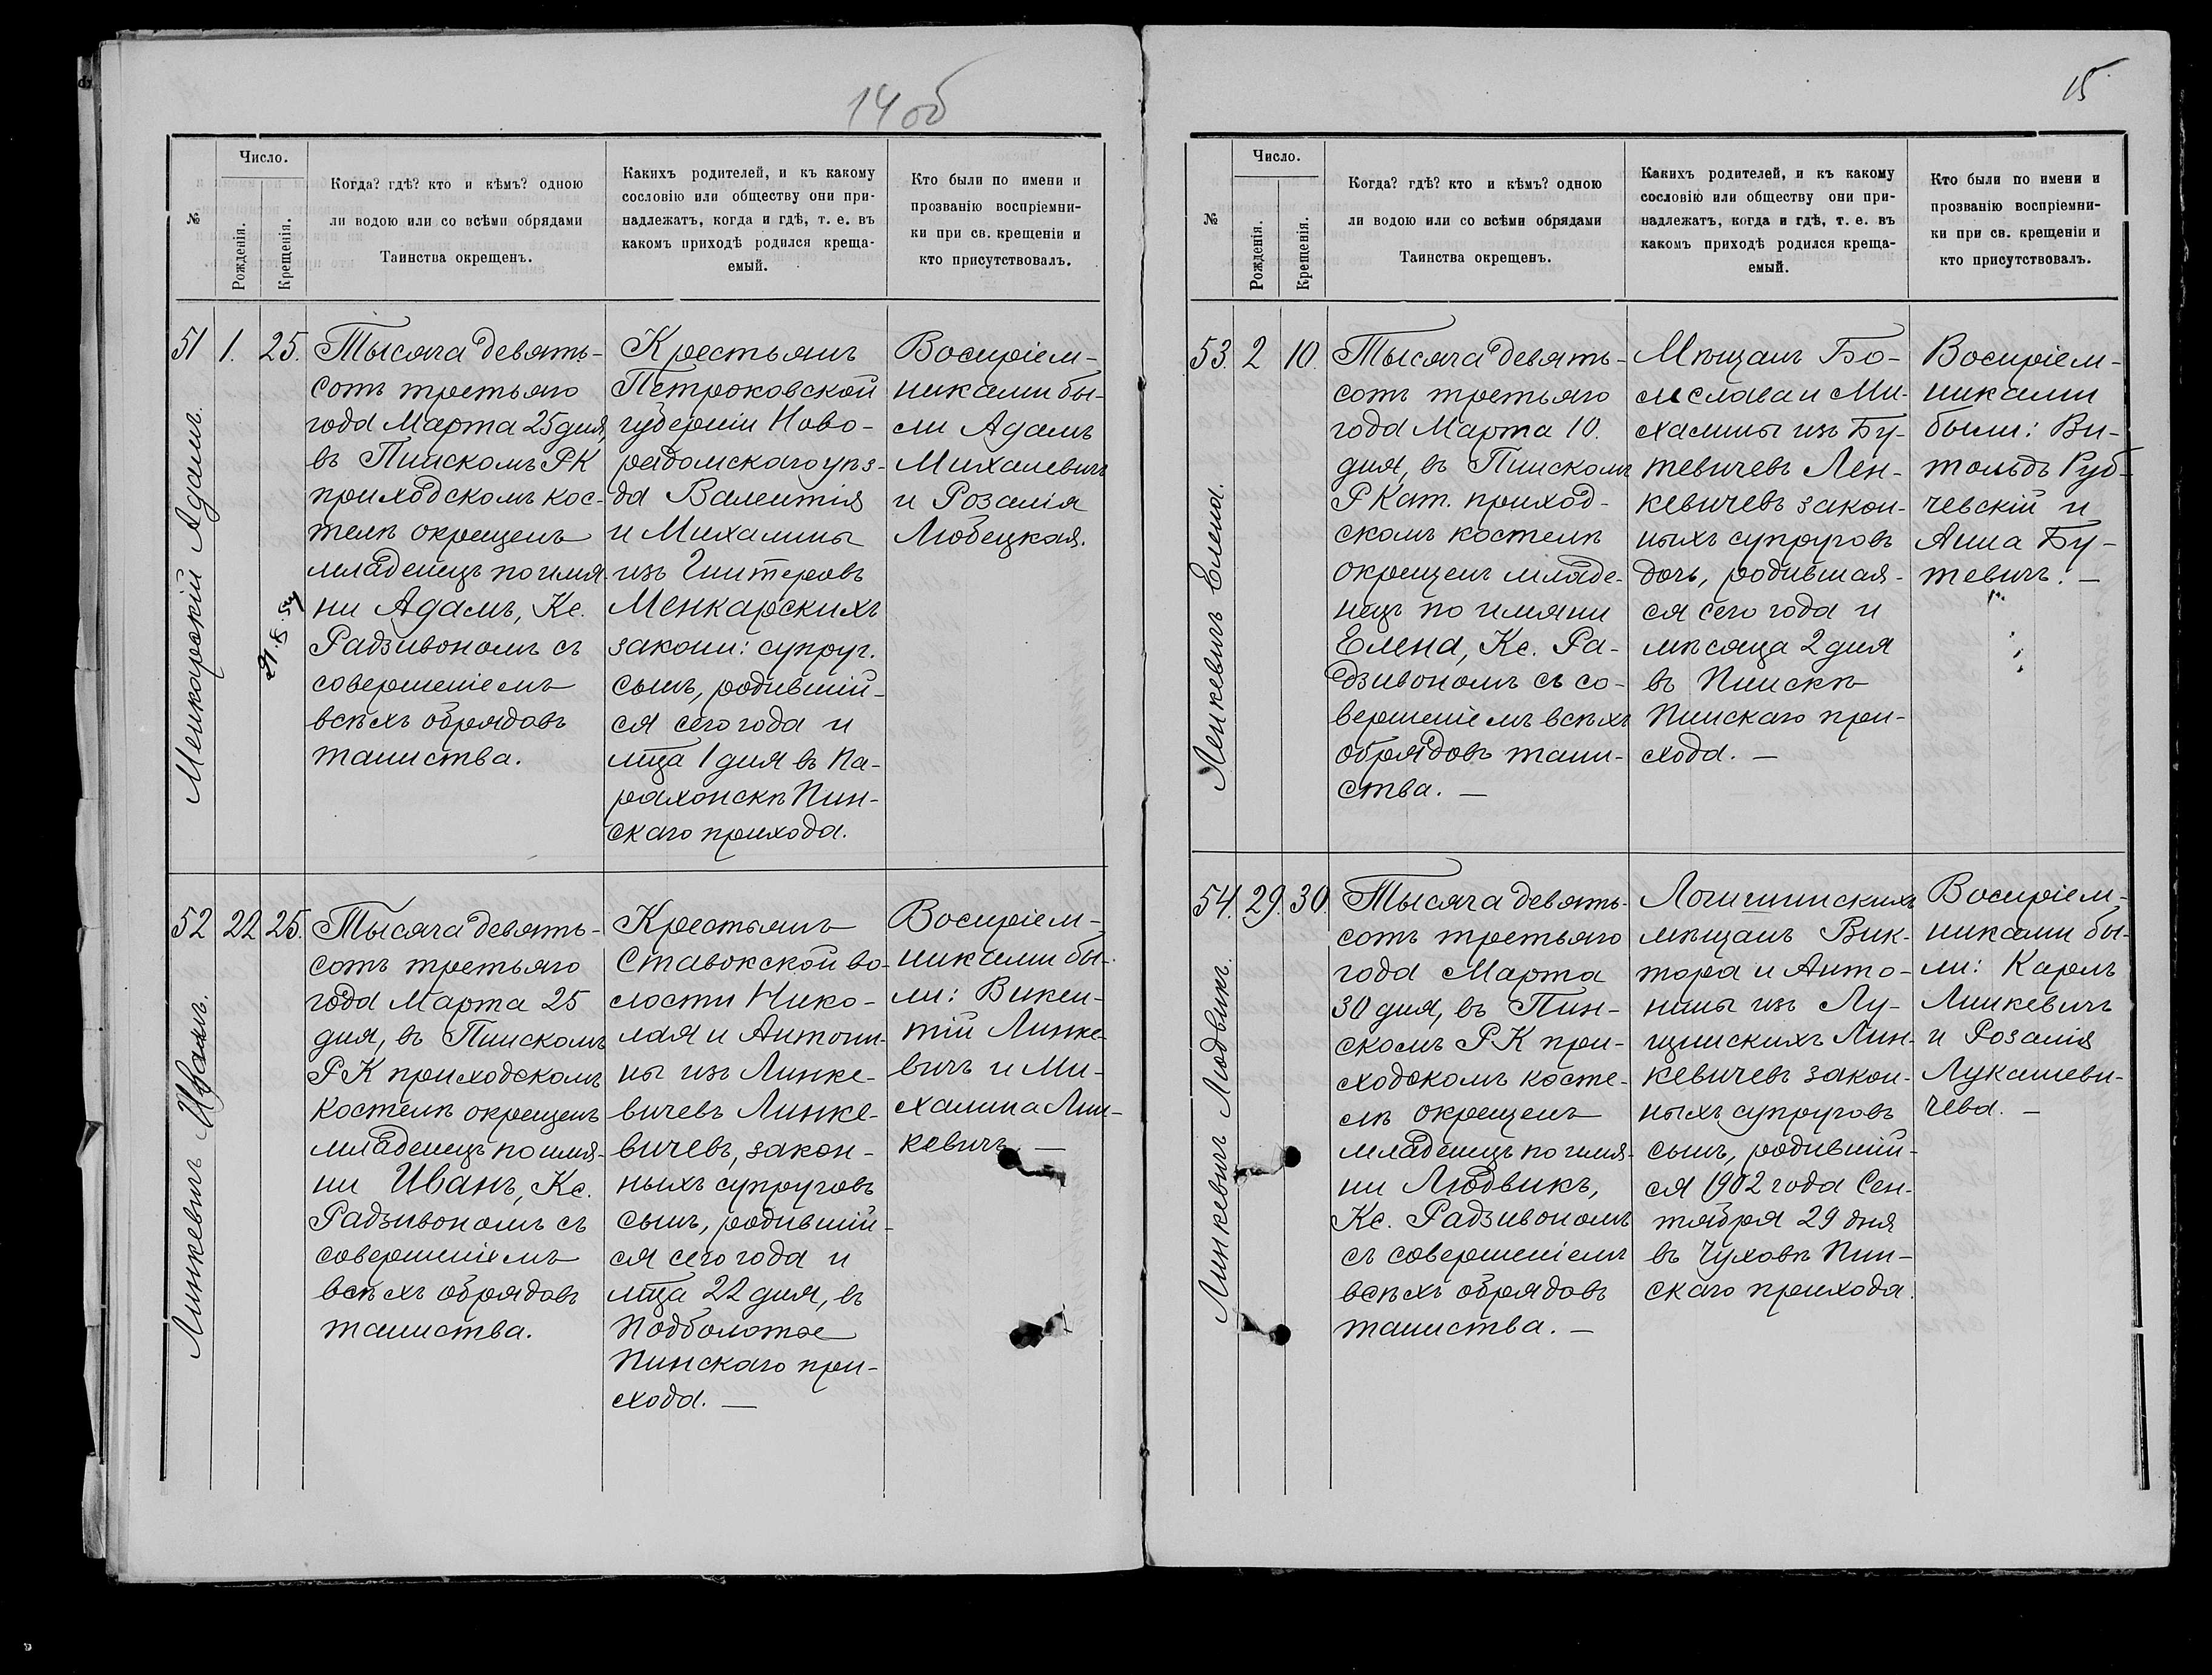 14 об
№
Число.
Рожденія.
Крещенія.
Когда? гдѣ? кто и кѣмъ? одною
ли водою или со всѣми обрядами
Таинства окрещенъ.
Какихъ родителей, и къ какому
сословію или обществу они при-
надлежатъ, когда и гдѣ, т. е. въ
какомъ приходѣ родился креща-
емый.
Кто были по имени и
прозванію воспріемни-
ки при св. крещеніи и
кто присутствовалъ.
51
1.
25.
Менкарскій Адамъ.
Тысяча девять-
сотъ третьяго
года Марта 25 дня,
въ Пинскомъ РК
приходскомъ кос-
телѣ окрещенъ
младенецъ по имя-
ни Адамъ, Кс.
Радзивономъ съ
совершеніемъ
всѣхъ обрядовъ
таинства.
Крестьянъ
Петроковской
губерніи Ново-
радомскаго уѣз-
да Валентія
и Михалины
изъ Гинтеровъ
Менкарскихъ
законн: супруг.
сынъ, родивший-
ся сего года и
мца 1 дня въ Па-
рахонскѣ Пин-
скаго прихода.
Воспріем-
никами бы-
ли Адамъ
Михалевичъ
и Розалія
Любецкая.
52
22
25.
Линкевичъ Иванъ.
Тысяча девять-
сотъ третьяго
года Марта 25
дня, въ Пинскомъ
РК приходскомъ
костелѣ окрещенъ
младенецъ по имя-
ни Иванъ, Кс.
Радзивономъ съ
совершеніемъ
всѣхъ обрядовъ
таинства.
Крестьянъ
Ставокской во-
лости Нико-
лая и Антони-
ны изъ Линке-
вичевъ Линке-
вичевъ, закон-
ныхъ супруговъ
сынъ, родивший-
ся сего года и
мца 22 дня, въ
Подболотье
Пинскаго при-
хода. —
Воспріем-
никами бы-
ли: Викен-
тій Линке-
вичъ и Ми-
халина Лин-
кевичъ. —
15
№
Число.
Рожденія.
Крещенія.
Когда? гдѣ? кто и кѣмъ? одною
ли водою или со всѣми обрядами
Таинства окрещенъ.
Какихъ родителей, и къ какому
сословію или обществу они при-
надлежатъ, когда и гдѣ, т. е. въ
какомъ приходѣ родился креща-
емый.
Кто были по имени и
прозванію воспріемни-
ки при св. крещеніи и
кто присутствовалъ.
53.
2
10.
Ленкевичъ Елена.
Тысяча девять-
сотъ третьяго
года Марта 10.
дня, въ Пинскомъ
Р Кат. приход-
скомъ костелѣ
окрещенъ младе-
нецъ по имяни
Елена, Кс. Ра-
дзивономъ съ со-
вершеніемъ всѣхъ
обрядовъ таин-
ства. —
Мѣщанъ Бо-
леслава и Ми-
халины изъ Бу-
тевичевъ Лен-
кевичевъ закон-
ныхъ супруговъ
дочь, родившая-
ся сего года и
мѣсяца 2 дня
въ Пинскѣ
Пинскаго при-
хода. —
Воспріем-
никами
были: Ви-
тольдъ Руб-
чевскій и
Анна Бу-
тевичъ. —
54.
29.
30.
Линкевичъ Людвикъ.
Тысяча девять-
сотъ третьяго
года Марта
30 дня, въ Пин-
скомъ РК при-
ходскомъ косте-
лѣ окрещенъ
младенецъ по имя-
ни Людвикъ,
Кс. Радзивономъ
съ совершеніемъ
всѣхъ обрядовъ
таинства. —
Логишинскихъ
мѣщанъ Вик-
тора и Анто-
нины изъ Лу-
щинскихъ Лин-
кевичевъ закон-
ныхъ супруговъ
сынъ, родивший-
ся 1902 года Сен-
тября 29 дня
въ Чуховѣ Пин-
скаго прихода.
Воспріем-
никами бы-
ли: Карлъ
Линкевичъ
и Розалія
Лукашеви-
чева. —